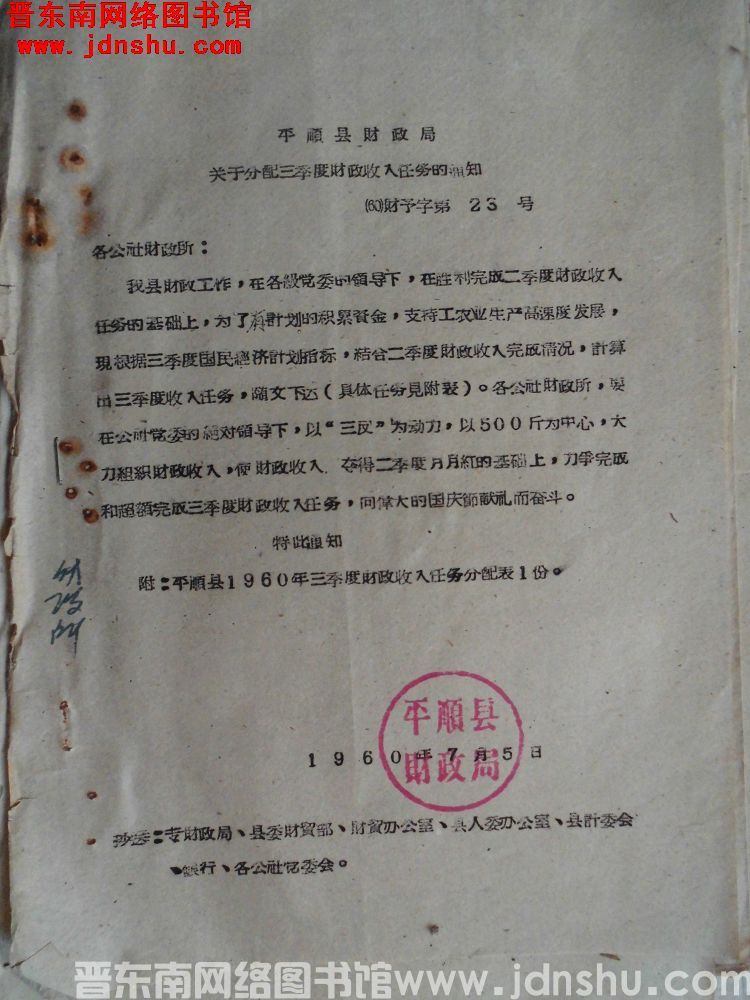 晋东南网络图书馆
www.jdnshu.com
平順县財政局
关于分配三季度財政收入任务的通知
(60)財予字第 23 号
各公社財政所：
我县財政工作，在各級党委的領导下，在胜利完成二季度財政收入
任务的基础上，为了有計划的积累資金，支持工农业生产高速度发展，
現根据三季度国民經济計划指标，結合二季度財政收入完成情况，計算
出三季度收入任务，随文下达（具体任务見附表）。各公社財政所，要
在公社党委的絕对領导下，以“三反”为动力，以500斤为中心，大
力組織財政收入，使財政收入 在夺得二季度月月紅的基础上，力爭完成
和超額完成三季度財政收入任务，向偉大的国庆節献礼而奋斗。
特此通知
附：平順县1960年三季度財政收入任务分配表1份。
平順县
財政局
1960年7月5日
抄送：专財政局、县委財貿部、財貿办公室、县人委办公室、县計委会
、銀行、各公社党委会。
晋东南网络图书馆www.jdnshu.com